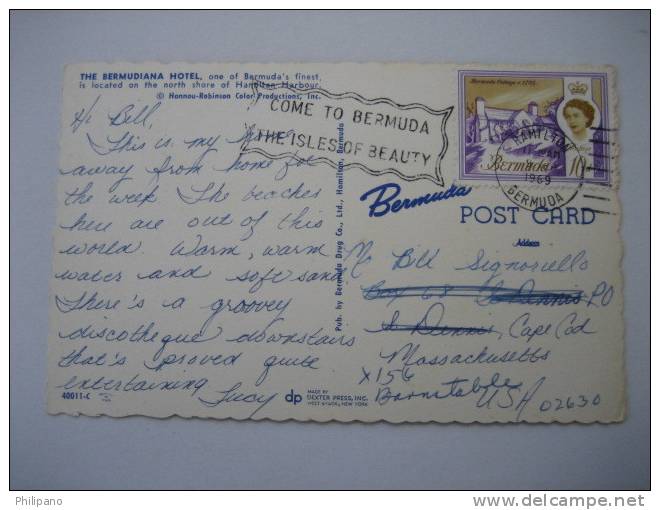 THE BERMUDIANA HOTEL, one of Bermuda's finest,
is located on the north shore of Hamilton Harbour.
© Hannau-Robinson Color Productions, Inc.
Hi Bill,
This is my home
away from home for
the week. The beaches
here are out of this
world. Warm, warm
water and soft sand
There's a groovey
discotheque downstairs
that's proved quite
entertaining
Lucy
40011-C
COME TO BERMUDA
THE ISLES OF BEAUTY
Bermuda Cottage c.1705
Bermuda
10
HAMILTON
AM
1969
BERMUDA
Pub. by Bermuda Drug Co., Ltd., Hamilton, Bermuda
Bermuda
POST CARD
Address
Mr Bill Signoriello
Box 68 S Dennis PO
S Dennis, Cape Cod
Massachusetts
X156
Barnstable
USA 02630
dp
MADE BY
DEXTER PRESS, INC.
WEST NYACK, NEW YORK
Philipano
www.delcampe.net